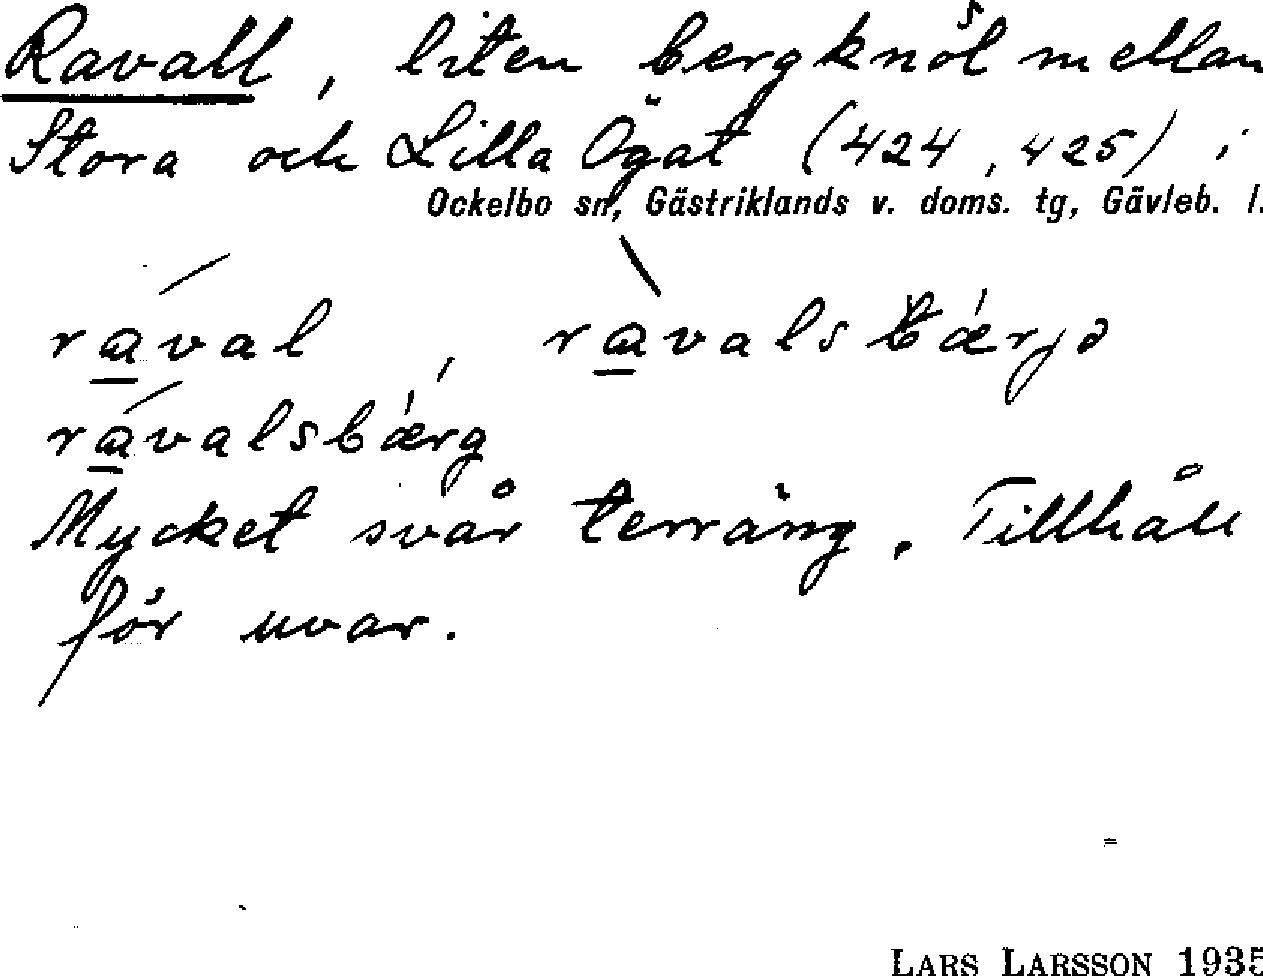 Ravall, liten bergknöl mellan
Stora och Lilla Ögat (424, 425) i
Ockelbo sn, Gästriklands v. doms. tg, Gävleb. l.
ra̲val, ra̲valsbærjə
ra̲valsbærg
Mycket svår terräng. Tillhåll
för uvar.
LARS LARSSON 1935